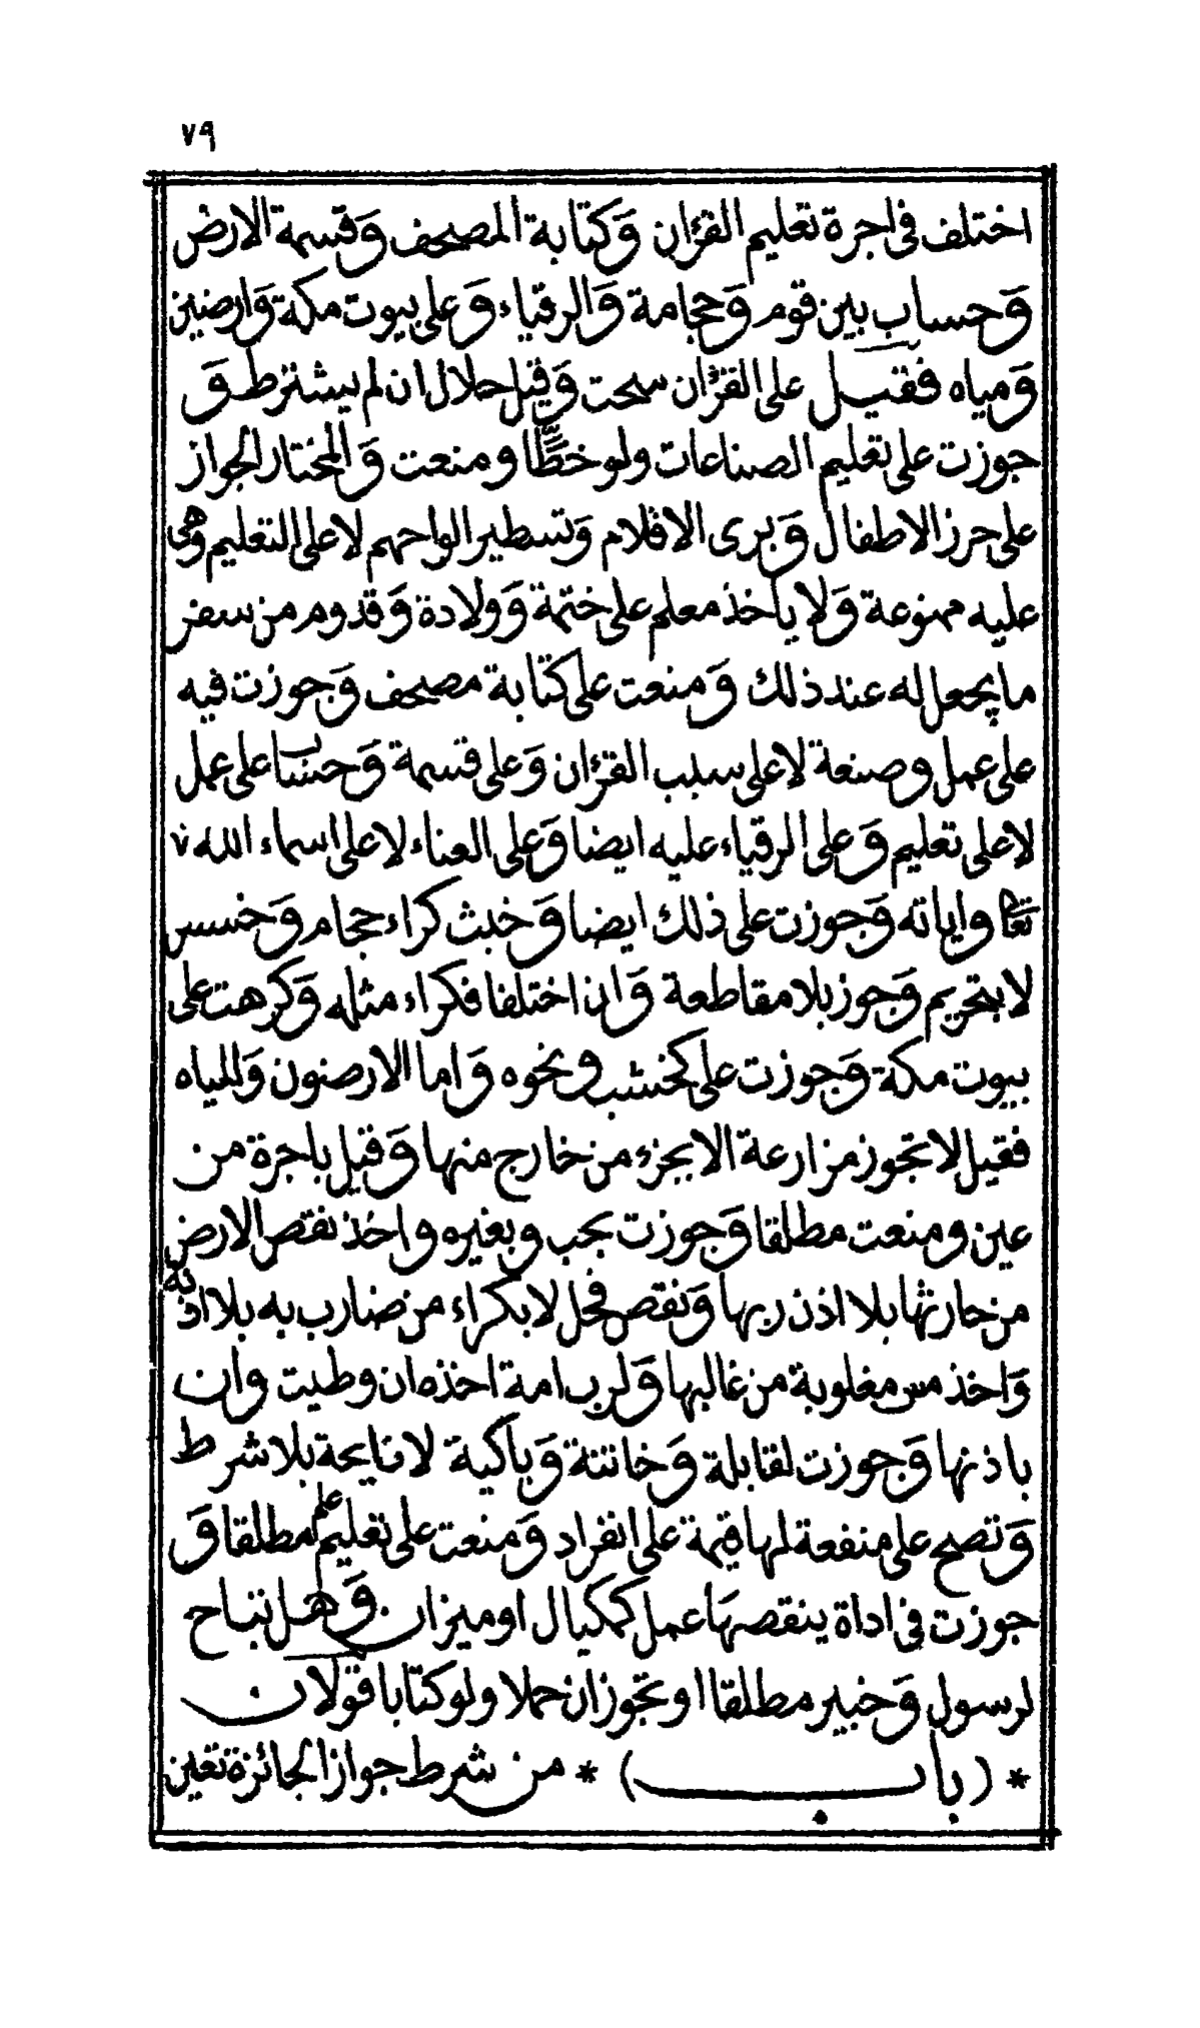 ٧٩
اختلف فى اجرة تعليم القرءان وَكتابة المصحف وَقسمة الارض
وَحساب بين قوم وَحجامة وَالرقياء وَعلى بيوت مكة وَارضين
وَمياه فقيل على القرءان سحت وَقيل حلال ان لم يشترط وَ
جوزت على تعليم الصناعات ولو خطًّا ومنعت وَالمختار الجواز
على حرز الاطفال وَبرى الاقلام وَتسطير الواحهم لا على التعليم وهى
عليه ممنوعة وَلا ياخذ معلم على ختمة وَولادة وَقدوم من سفر
ما يجعل له عند ذلك وَمنعت على كتابة مصحف وَجوزت فيه
على عمل وصنعة لا على سبب القرءان وَعلى قسمة وَحساب على عمل
لا على تعليم وَعلى الرقياء عليه ايضا وَعلى العناء لا على اسماء الله
تعا واياته وَجوزت على ذلك ايضا وَخبث كراء حجام وَخسس
لا بتحريم وَجوز بلا مقاطعة وَان اختلفا فكراء مثله وَكرهت على
بيوت مكة وَجوزت على كخشب ونحوه وَاما الارضون وَالمياه
فقيل لا تجوز مزارعة الا بجزء من خارج منها وَقيل باجرة من
عين ومنعت مطلقا وَجوزت بحب وبغيره واخذ نقص الارض
من حارثها بلا اذن ربها وَنقص فحل لا بكراء من ضارب به بلا اذنه
وَاخذ مس مغلوبة من غالبها وَلرب امة اخذه ان وطيت وان
باذنها وَجوزت لقابلة وَخاتنة وَباكية لا نايحة بلا شرط
وَتصح على منفعة لها قيمة على انفراد وَمنعت على تعليم علم مطلقا وَ
جوزت فى اداة ينقصها عمل كمكيال او ميزان وَهل تباح
لرسول وَخبير مطلقا او تجوز ان حملا ولو كتابا قولان
* ( باب ) * من شرط جواز الجائزة تعين